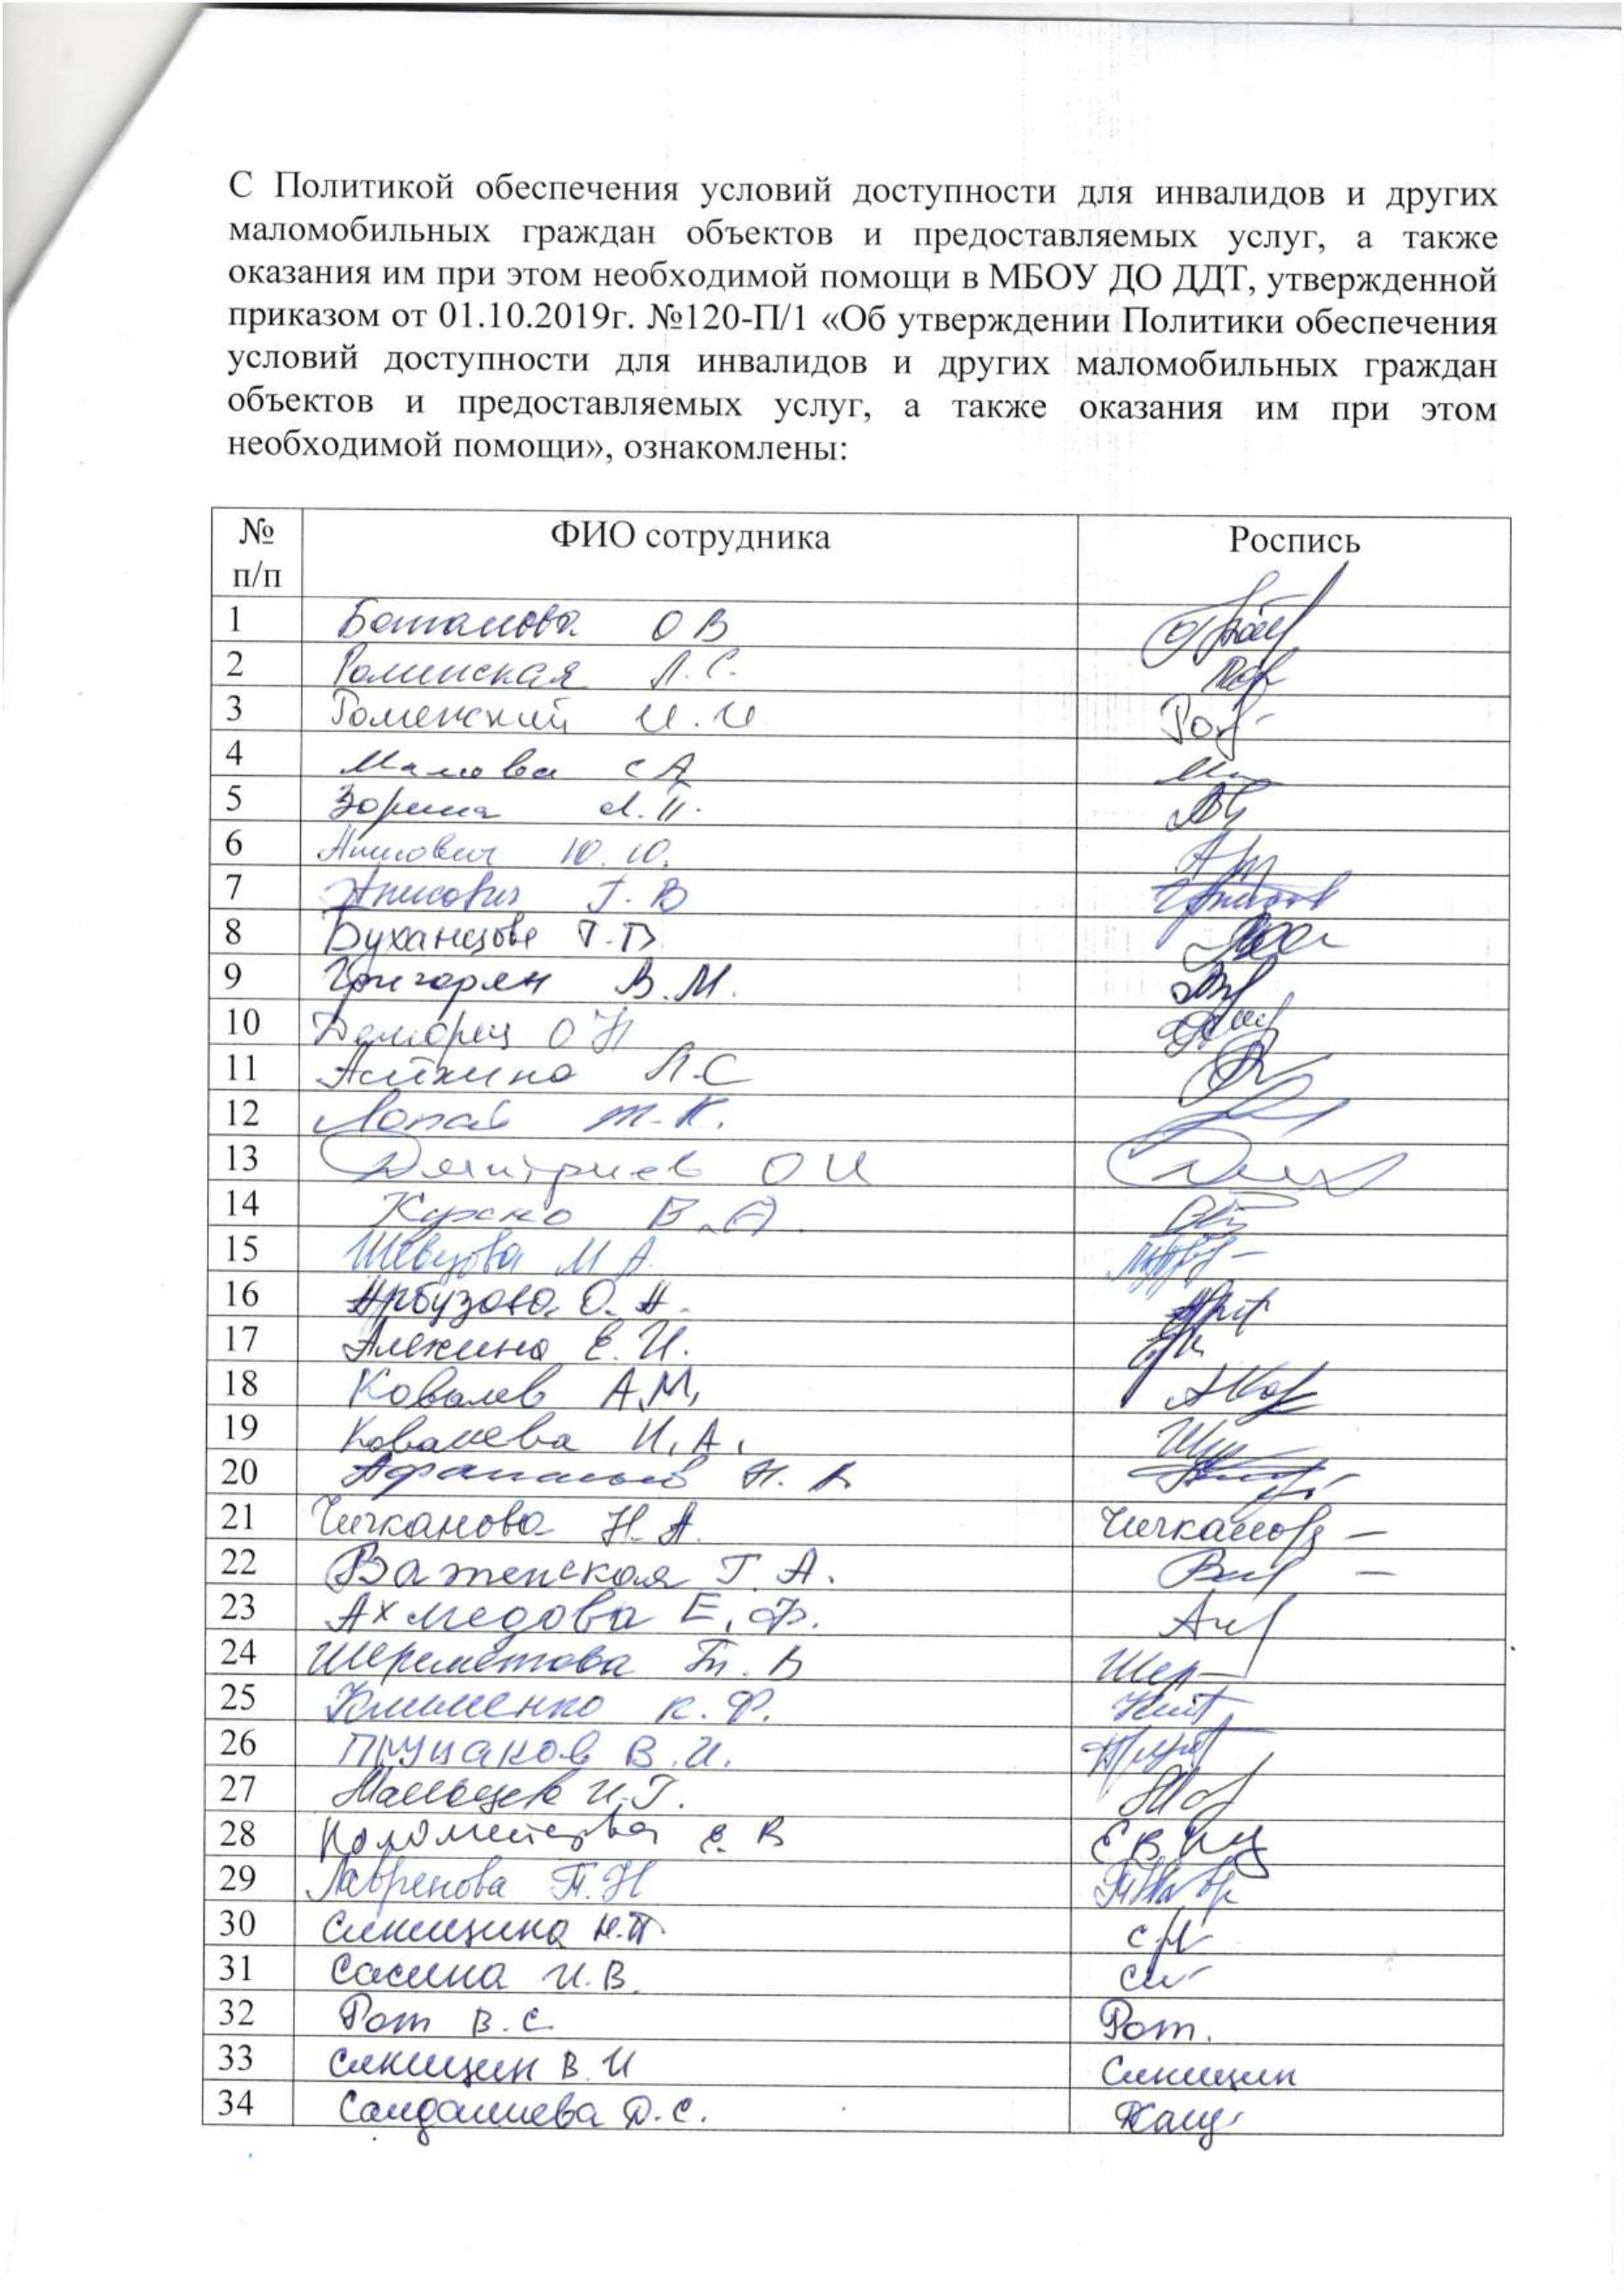 С Политикой обеспечения условий доступности для инвалидов и других
маломобильных граждан объектов и предоставляемых услуг, а также
оказания им при этом необходимой помощи в МБОУ ДО ДДТ, утвержденной
приказом от 01.10.2019г. №120-П/1 «Об утверждении Политики обеспечения
условий доступности для инвалидов и других маломобильных граждан
объектов и предоставляемых услуг, а также оказания им при этом
необходимой помощи», ознакомлены:
№ п/п ФИО сотрудника Роспись
1 О В
2 Роменская Л.С.
3 Роменский И.И
4 С А
5 Зорина Л.П.
6 Анисович Ю.Ю.
7 Анисович Г.В
8 Буханцова Т.В
9 Григорян В.М.
10 О Н
11 Л.С
12 Т.К.
13 Дмитриев О И
14 В.А.
15 Шевцова М А.
16 Арбузова О.А.
17 Алехина Е.И.
18 Ковалев А.М,
19 Ковалева И.А.
20
21 Чичканова Н.А. Чичканова
22 Важенская Г.А.
23 Ахмедова Е.Ф.
24 Шереметова Т.В Шер
25 Клименко К.Ф.
26 Прусаков В.И.
27 Мальцев И.Г.
28 Коломейцева Е В
29 Лавренова Т.Н
30 Синицина Н.П.
31 Сасина И.В.
32 Рот В.С. Рот.
33 Синицин В.И Синицин
34 Д.С.